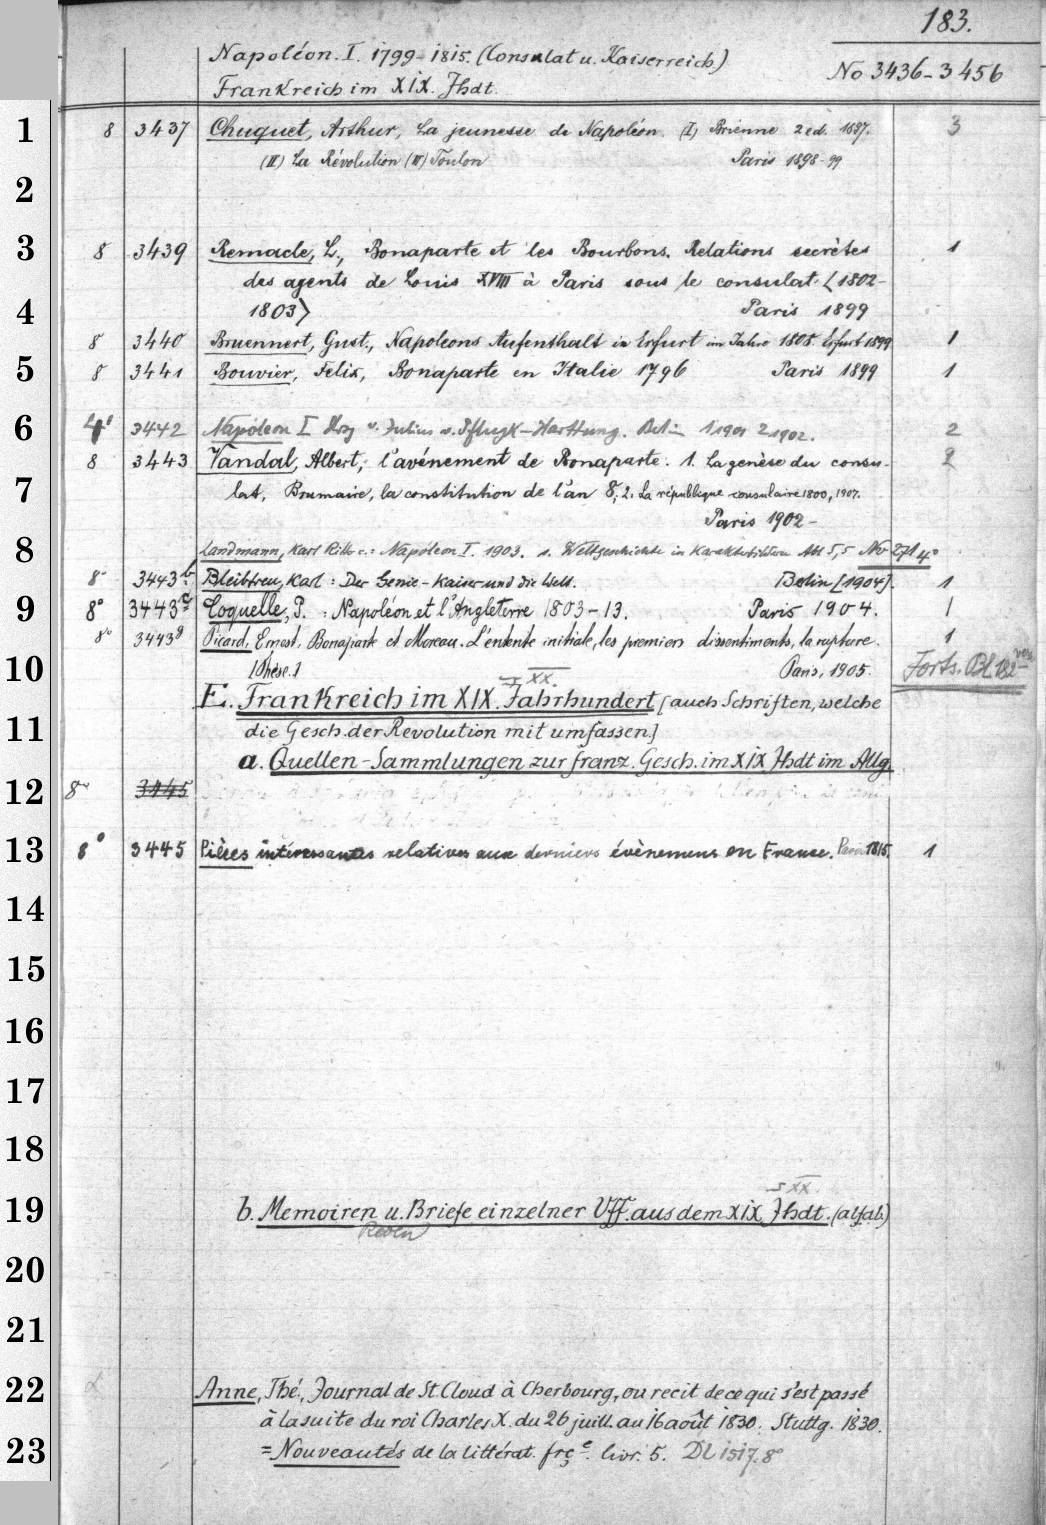 183.
Napoléon. I. 1799-1815. (Consulat u. Kaiserreich)
No 3436-3456
Frankreich im XIX. Jhdt.
1 8 3437 Chuquet, Arthur, La jeunesse de Napoléon. (I) Brienne 2 ed. 1897. 3
(II) La Révolution (III) Toulon Paris 1898-99
2
3 8 3439 Remacle, L., Bonaparte et les Bourbons. Relations secrètes 1
des agents de Louis XVIII à Paris sous le consulat. (1802-
4 1803) Paris 1899
8 3440 Bruennert, Gust., Napoleons Aufenthalt in Erfurt im Jahre 1808. Erfurt 1899 1
5 8 3441 Bouvier, Felix, Bonaparte en Italie 1796 Paris 1899 1
6 4° 3442 Napoleon I Hrg v. Julius v. Pflugk-Harttung. Berlin 1 1901 2 1902. 2
8 3443 Vandal, Albert, l'avénement de Bonaparte. 1. La genèse du consu- 2
7 lat, Brumaire, la constitution de l'an 8, 2. La république consulaire 1800, 1907.
Paris 1902-
8 Landmann, Karl Ritter v.: Napoleon I. 1903. s. Weltgeschichte in Karakterbildern Abt 5,5 No 271 4°
8° 3443b Bleibtreu, Karl: Der Genie-Kaiser und die Welt. Berlin [1904]. 1
9 8° 3443c Coquelle, P.: Napoléon et l'Angleterre 1803-13. Paris 1904. 1
8° 3443g Picard, Ernest. Bonaparte et Moreau. L'entente initiale, les premiers dissentiments, la rupture. 1
10 [Thèse.] Paris, 1905. Forts. Bl 182
XX.
E. Frankreich im XIX. Jahrhundert [auch Schriften, welche
11 die Gesch. der Revolution mit umfassen]
a. Quellen-Sammlungen zur franz. Gesch. im XIX Jhdt im Allg.
12 8° 3445
13 8° 3445 Pièces intéressantes relatives aux derniers évènemens en France. Paris 1815. 1
14
15
16
17
18
XX.
19 b. Memoiren u. Briefe einzelner Vff. aus dem XIX Jhdt. (alfab.)
Reden
20
21
22 Anne, Thé., Journal de St. Cloud à Cherbourg, ou recit de ce qui s'est passé
à la suite du roi Charles X. du 26 juill. au 16 août 1830. Stuttg. 1830.
23 = Nouveautés de la littérat. frçe. livr. 5. Dl 1517. 8°